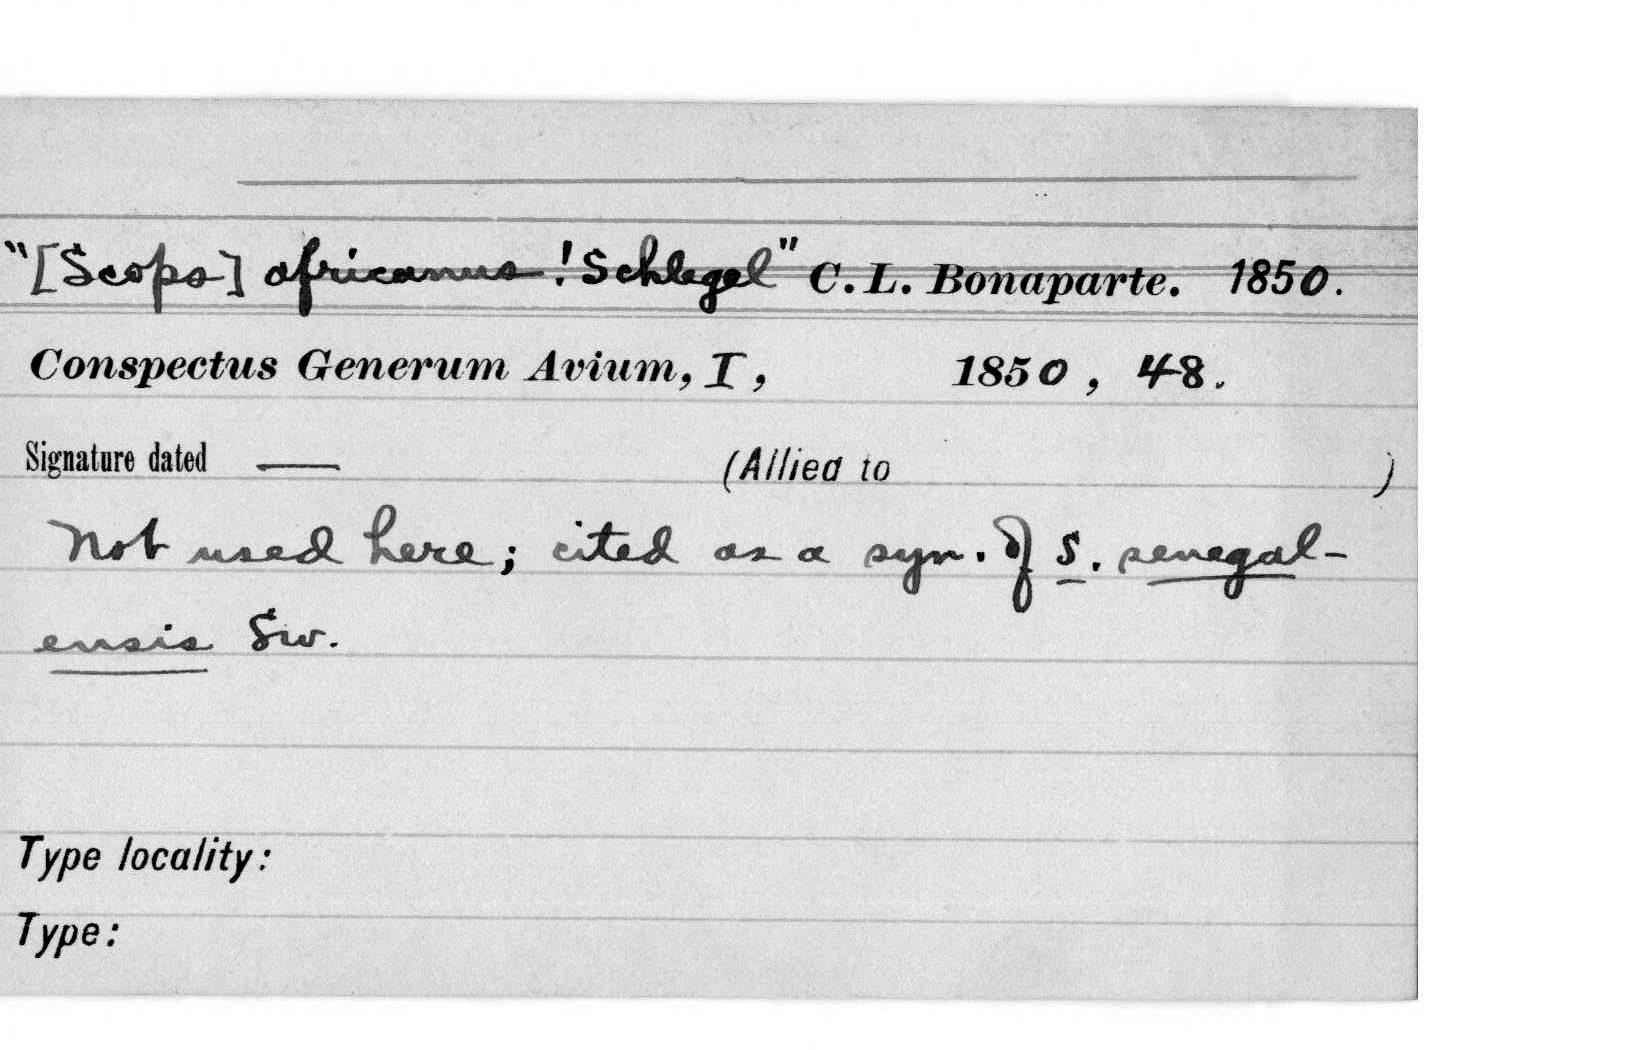 "[Scops] africanus! Schlegel" C. L. Bonaparte. 1850.
Conspectus Generum Avium, I, 1850, 48.
Signature dated — (Allied to )
Not used here; cited as a syn. of S. senegal-
ensis Sw.
Type locality:
Type: